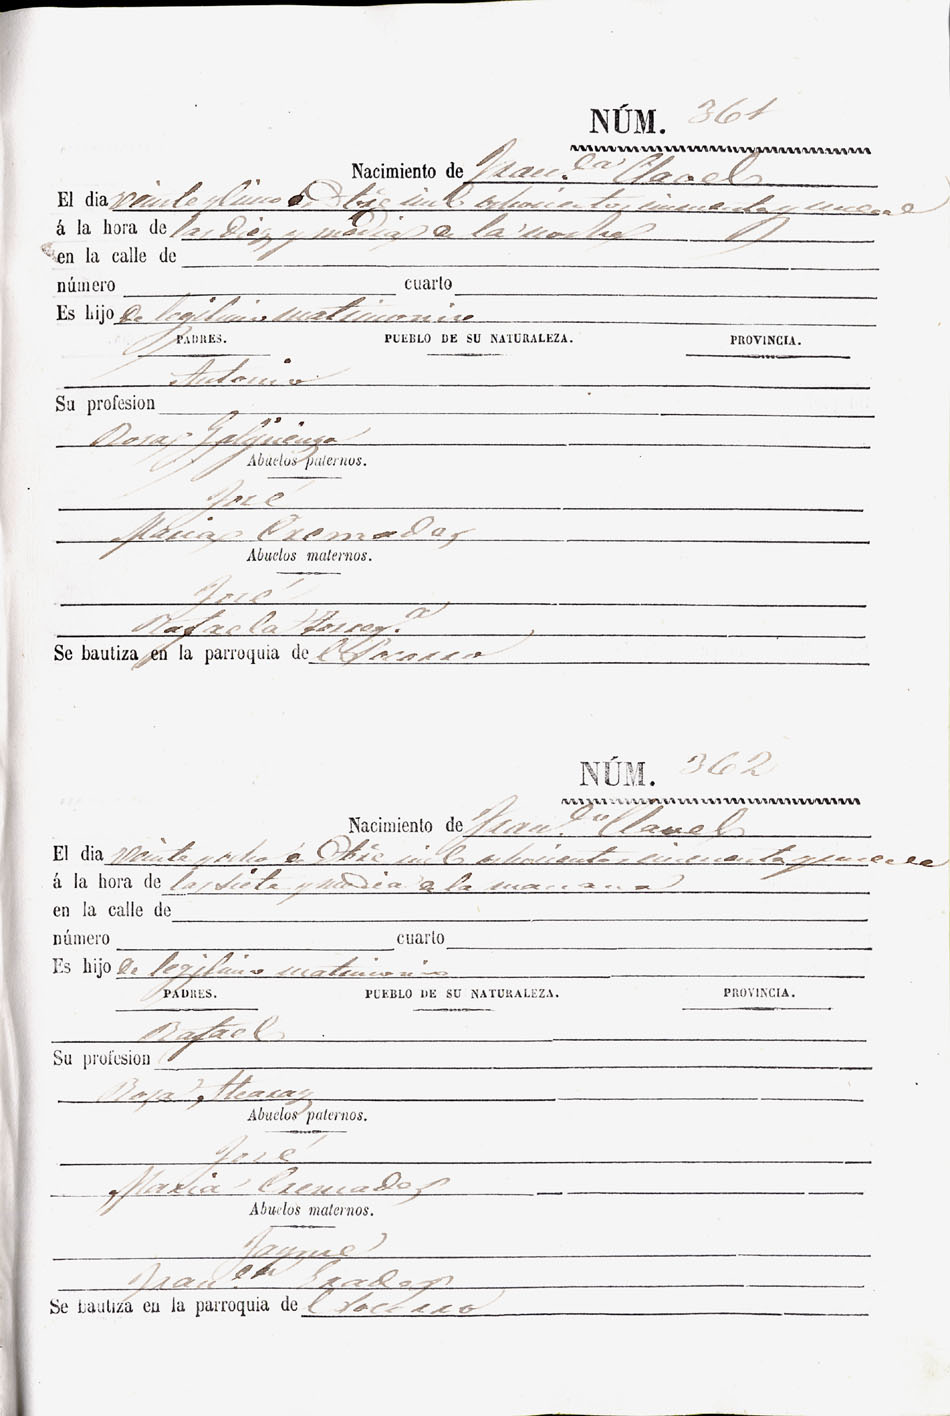 NÚM. 361
Nacimiento de Fran.ca Clavel
El dia veinte y cinco de Dbre mil ochocientos cincuenta y nueve
á la hora de las diez y media de la noche
en la calle de
número cuarto
Es hijo de legitimo matrimonio
PADRES. PUEBLO DE SU NATURALEZA. PROVINCIA.
Antonio
Su profesion
Rosa
Abuelos paternos.
José
Maria Cremades
Abuelos maternos.
José
Rafaela
Se bautiza en la parroquia de el Socorro
NÚM. 362
Nacimiento de Fran.co Clavel
El dia veinte y ocho de Dbre mil ochocientos cincuenta y nueve
á la hora de las siete y media de la manana
en la calle de
número cuarto
Es hijo de legitimo matrimonio
PADRES. PUEBLO DE SU NATURALEZA. PROVINCIA.
Rafael
Su profesion
Rosa
Abuelos paternos.
José
Maria Cremades
Abuelos maternos.
Jayme
Fran.ca
Se bautiza en la parroquia de el Socorro